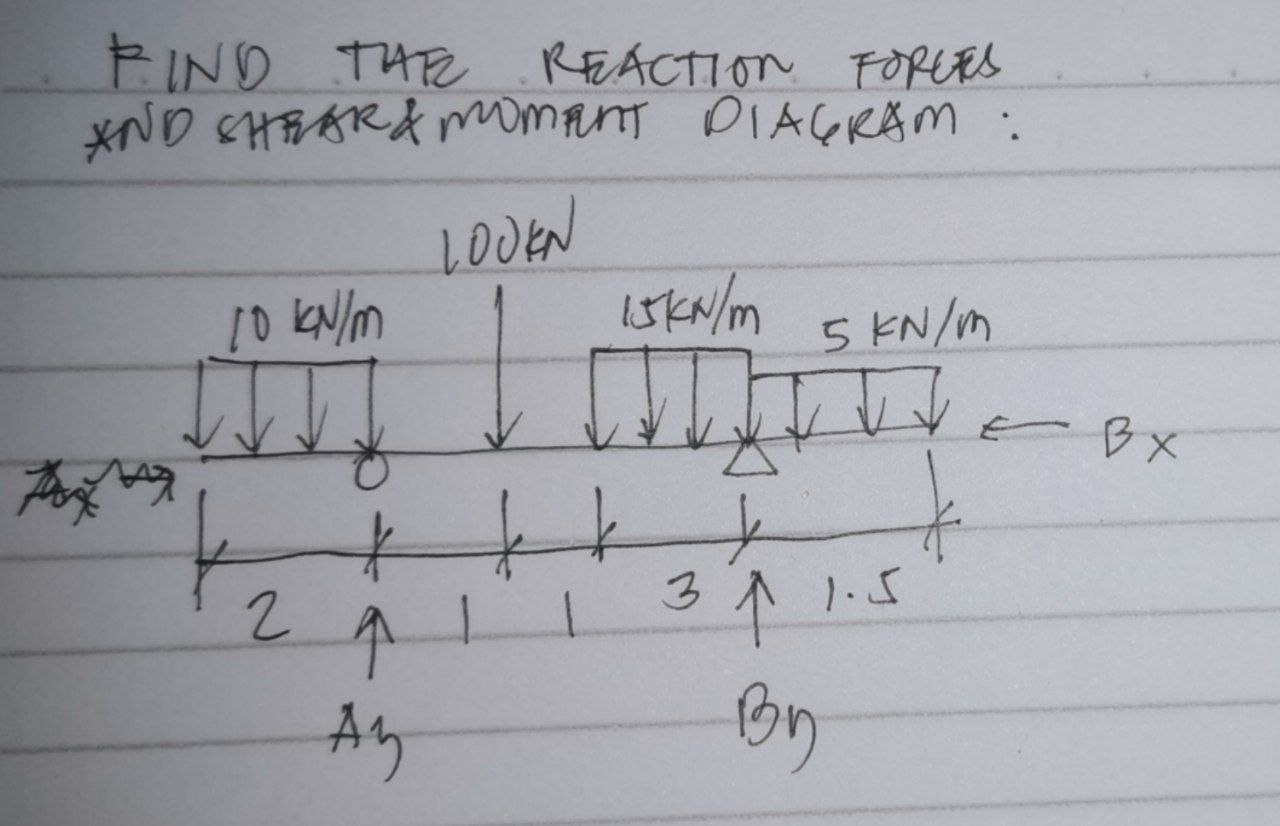 FIND THE REACTION FORCES
AND SHEAR & MOMENT DIAGRAM :
100KN
10 KN/m
15KN/m
5 KN/m
Bx
2
1
1
3
1.5
Ay
By